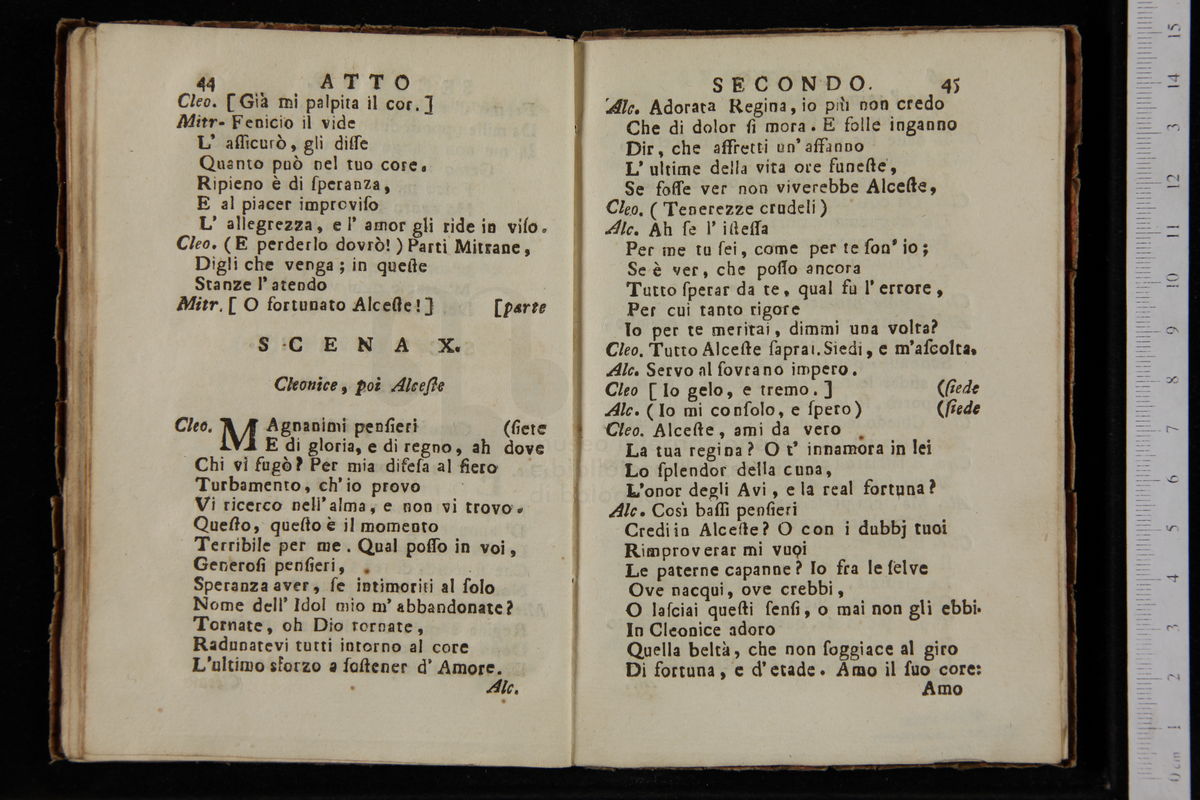 44 ATTO
Cleo. [Già mi palpita il cor.]
Mitr- Fenicio il vide
L' aſſicurò, gli diſſe
Quanto può nel tuo core.
Ripieno è di ſperanza,
E al piacer improviſo
L' allegrezza, e l' amor gli ride in viſo.
Cleo. (E perderlo dovrò!) Parti Mitrane,
Digli che venga; in queſte
Stanze l' atendo
Mitr. [O fortunato Alceſte!] [parte
SCENA X.
Cleonice, poi Alceſte
Cleo. MAgnanimi penſieri (ſiete
E di gloria, e di regno, ah dove
Chi vi fugò? Per mia difeſa al fiero
Turbamento, ch' io provo
Vi ricerco nell' alma, e non vi trovo.
Queſto, queſto è il momento
Terribile per me. Qual poſſo in voi,
Generoſi penſieri,
Speranza aver, ſe intimoriti al ſolo
Nome dell' Idol mio m' abbandonate?
Tornate, oh Dio tornate,
Radunatevi tutti intorno al core
L'ultimo sforzo a ſoſtener d' Amore.
Alc.
SECONDO. 45
Alc. Adorata Regina, io più non credo
Che di dolor ſi mora. E folle inganno
Dir, che affretti un' affanno
L' ultime della vita ore funeſte,
Se foſſe ver non viverebbe Alceſte,
Cleo. (Tenerezze crudeli)
Alc. Ah ſe l' iſteſſa
Per me tu ſei, come per te ſon' io;
Se è ver, che poſſo ancora
Tutto ſperar da te, qual fu l' errore,
Per cui tanto rigore
Io per te meritai, dimmi una volta?
Cleo. Tutto Alceſte ſaprai. Siedi, e m'aſcolta.
Alc. Servo al ſovrano impero.
Cleo [Io gelo, e tremo.] (ſiede
Alc. (Io mi conſolo, e ſpero) (ſiede
Cleo. Alceſte, ami da vero
La tua regina? O t' innamora in lei
Lo ſplendor della cuna,
L'onor degli Avi, e la real fortuna?
Alc. Così baſſi penſieri
Credi in Alceſte? O con i dubbj tuoi
Rimproverar mi vuoi
Le paterne capanne? Io fra le ſelve
Ove nacqui, ove crebbi,
O laſciai queſti ſenſi, o mai non gli ebbi.
In Cleonice adoro
Quella beltà, che non ſoggiace al giro
Di fortuna, e d' etade. Amo il ſuo core:
Amo
0 cm 1 2 3 4 5 6 7 8 9 10 11 12 13 14 15